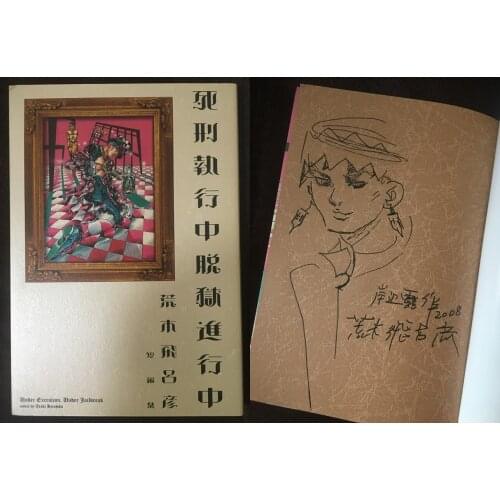 死刑執行中脱獄進行中
荒木飛呂彦
短編集
Under Execution, Under Jailbreak
noted by Araki Hirohiko
岸辺露伴
2008
荒木飛呂彦